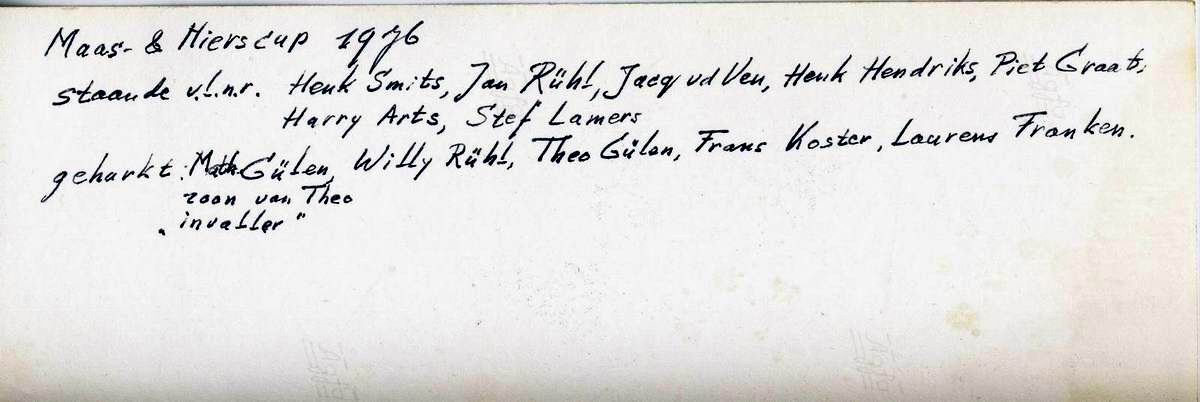 Maas- & Nierscup 1976
staande v.l.n.r. Henk Smits, Jan Rühl, Jacq vd Ven, Henk Hendriks, Piet Graats,
Harry Arts, Stef Lamers
gehurkt: Math Gülen, Willy Rühl, Theo Gülen, Frans Koster, Laurens Franken.
zoon van Theo
„invaller"